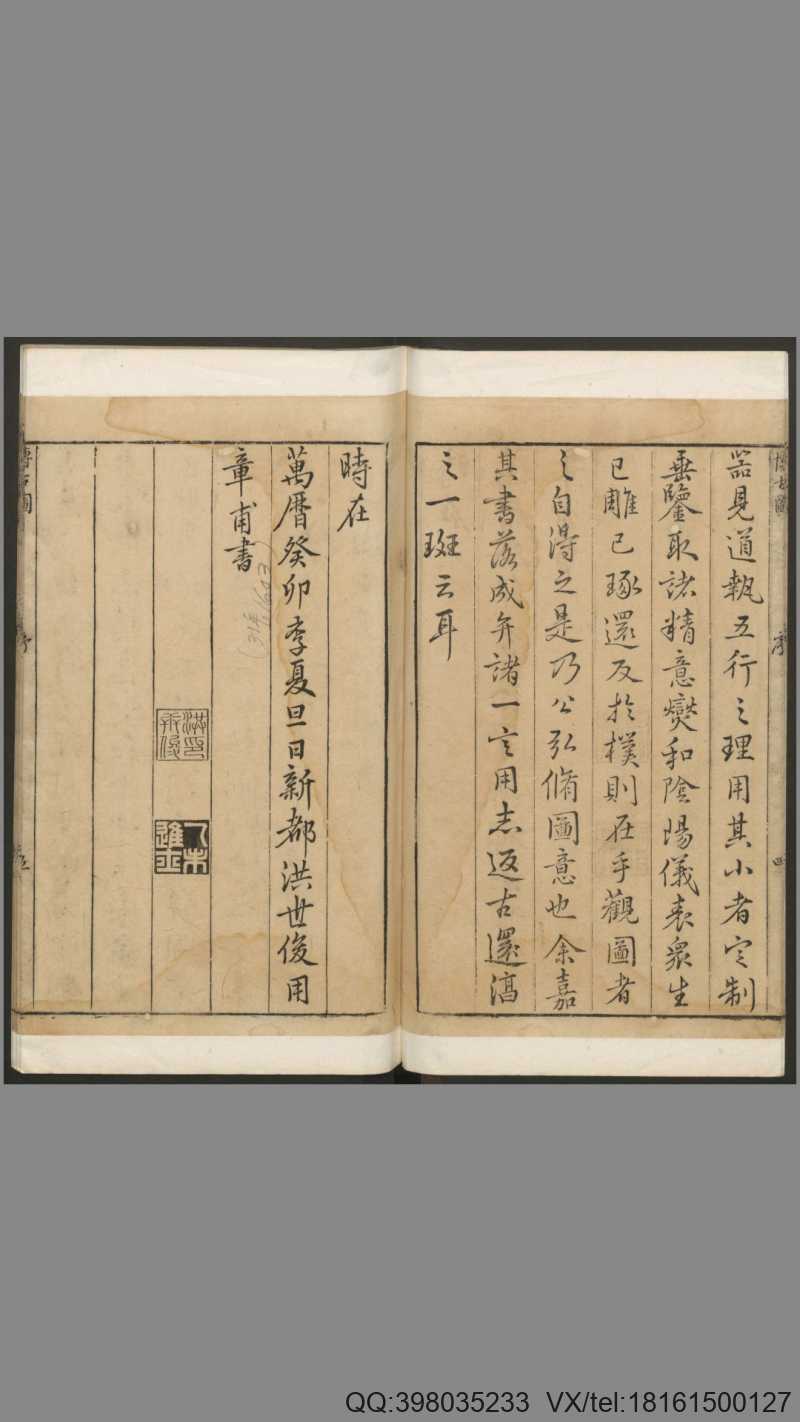 博古圖
序
四
器見道執五行之理用其小者它制
垂鑒取諸精意爕和陰陽儀表衆生
已雕已琢還反於樸則在乎觀圖者
之自得之是乃公弘脩圖意也余嘉
其書落成弁諸一言用志返古還淳
之一斑云耳
時在
萬曆癸卯季夏旦日新都洪世俊用
章甫書
博古圖
序
五
QQ:398035233 VX/tel:18161500127